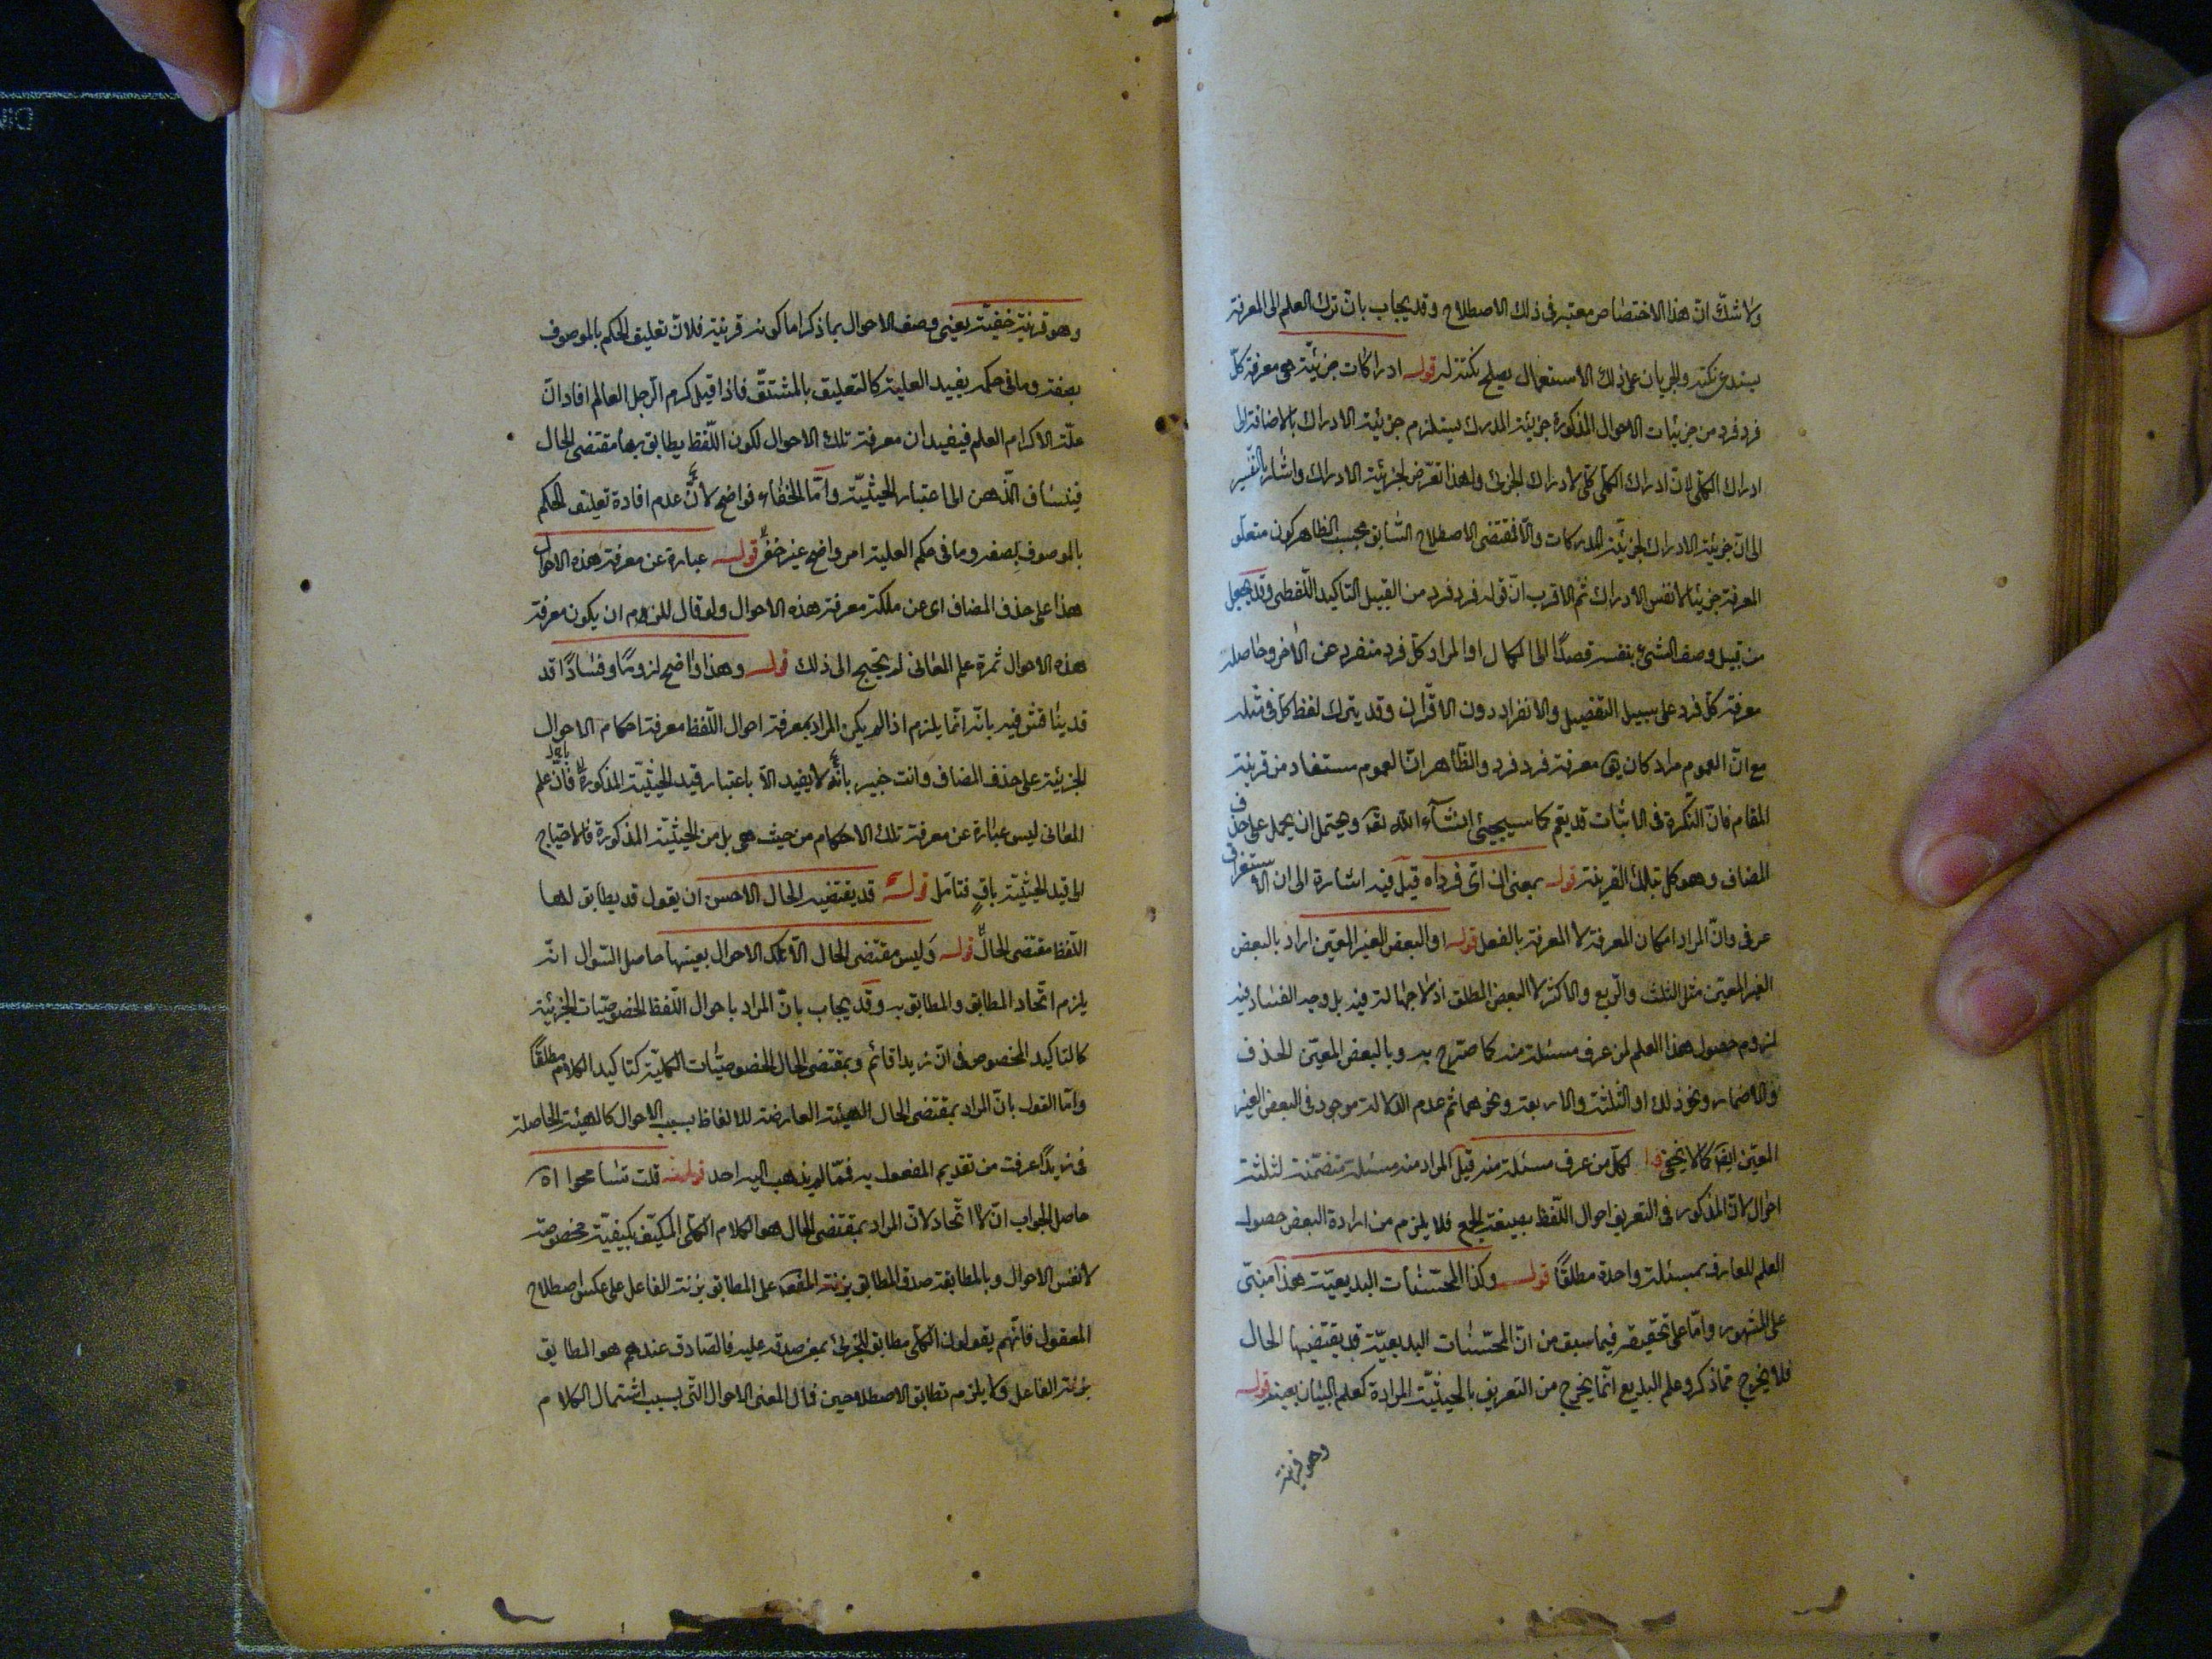 ولا شك ان هذا الاختصاص معتبر فى ذلك الاصطلاح وقد يجاب بان ترك العلم الى المعرفة
يستدعى نكتة والجريان على ذلك الاستعمال يصلح نكتة له قوله ادراكات جزئية هى معرفة كل
فرد فرد من جزئيات الاحوال المذكورة جزئية المدرك يستلزم جزئية الادراك بالاضافة الى
ادراك الكلى لان ادراك الكلى كلى لادراك الجزئى ولهذا تعرض لجزئية الادراك واشار بالتفسير
الى ان جزئية الادراك لجزئية المدركات والا فمقتضى الاصطلاح السابق بحسب الظاهر كون متعلق
المعرفة جزئيا لا نفس الادراك ثم الاقرب ان قوله فرد فرد من القبيل التاكيد اللفظى وقد يجعل
من قبيل وصف الشىء بنفسه قصدًا الى الكمال او المراد كل فرد منفرد عن الاخر وحاصله
معرفة كل فرد على سبيل التفصيل والانفراد دون الاقتران وقد يترك لفظ كل فى مثله
مع ان العموم مراد كان يق معرفة فرد فرد والظاهر ان العموم مستفاد من قرينة
المقام فان النكرة فى الاثبات قد يعم كما سيجيئ انشآء الله تعه ويحتمل ان يحمل على حذف
المضاف وهو كل بتلك القرينة قوله بمعنى ان اى فرد اه قيل فيه اشارة الى ان الاستغراق
عرفى وان المراد امكان المعرفة لا المعرفة بالفعل قوله او البعض الغير المعين اراد بالبعض
الغير المعين مثل الثلث والربع والاكثر لا البعض المطلق اذ لا جهالة فيه بل وجه الفساد فيه
لزوم حصول هذا العلم لمن عرف مسئلة منه كما صرح به وبالبعض المعين الحذف
والاضمار ونحو ذلك او الثلثة والاربعة ونحوهما ثم عدم الدلالة موجود فى البعض الغير
المعين ايضا كما لا يخفى لكل من عرف مسئلة منه قيل المراد منه مسئلة متضمنة لثلثة
احوال لان المذكور فى التعريف احوال اللفظ بصيغة الجمع فلا يلزم من ارادة البعض حصول
العلم للعارف بمسئلة واحدة مطلقًا قوله وكذا المحسنات البديعية هذا مبنى
على المشهور واما على تحقيقه فيما سبق من ان المحسنات البديعية قد يقتضيها الحال
فلا يخرج مما ذكر وعلم البديع انما يخرج من التعريف بالحيثية المرادة كعلم البيان بعينه قوله
وهو قرينة
وهو قرينة خفية يعنى وصف الاحوال بما ذكر اما كونه قرينة فلان تعليق الحكم بالموصوف
بصفة وما فى حكمه يفيد العلية كالتعليق بالمشتق فاذا قيل اكرم الرجل العالم افاد ان
علة الاكرام العلم فيفيد ان معرفة تلك الاحوال لكون اللفظ يطابق بها مقتضى الحال
فينساق الذهن الى اعتبار الحيثية واما الخفاء فواضح لان عدم افادة تعليق الحكم
بالموصوف بصفة وما فى حكم العلية امر واضح غير خفى قوله عبارة عن معرفة هذه الاحوال
هذا على حذف المضاف اى عن ملكة معرفة هذه الاحوال ولو قال للزوم ان يكون معرفة
هذه الاحوال ثمرة علم المعانى لم يحتج الى ذلك قوله وهذا واضح لزومًا وفسادًا قد
قد يناقش فيه بانه انما يلزم اذا لم يكن المراد بمعرفة احوال اللفظ معرفة احكام الاحوال
الجزئية على حذف المضاف وانت خبير بانه لا يفيد الا باعتبار قيد الحيثية المذكورة فان علم
المعانى ليس عبارة عن معرفة تلك الاحكام من حيث هى بل من الحيثية المذكورة فالاحتياج
الى قيد الحيثية باقٍ فتامل قوله قد يقتضيه الحال الاحسن ان يقول قد يطابق لها
اللفظ مقتضى الحال قوله وليس مقتضى الحال الا تلك الاحوال بعينها حاصل السوال انه
يلزم اتحاد المطابق والمطابق به وقد يجاب بان المراد باحوال اللفظ الخصوصيات الجزئية
كالتاكيد المخصوص فى ان زيدا قائم وبمقتضى الحال الخصوصيات الكلية كتاكيد الكلام مطلقًا
واما القول بان المراد بمقتضى الحال الهيئة العارضة للالفاظ بسبب الاحوال كالهيئة الحاصلة
فى زيدًا عرفت من تقديم المفعول به فمما لم يذهب اليه احد قوله قلت تسامحوا اه
حاصل الجواب ان لا اتحاد لان المراد بمقتضى الحال هو الكلام الكلى المكيف بكيفية مخصوصة
لا نفس الاحوال وبالمطابقة صدق المطابق بزنة المفعول على المطابق بزنة الفاعل على عكس اصطلاح
المعقول فانهم يقولون الكلى مطابق للجزئى بمعنى صدقه عليه فالصادق عندهم هو المطابق
بزنة الفاعل ولا يلزم تطابق الاصطلاحين فال المعنى الاحوال التى بسبب اشتمال الكلام